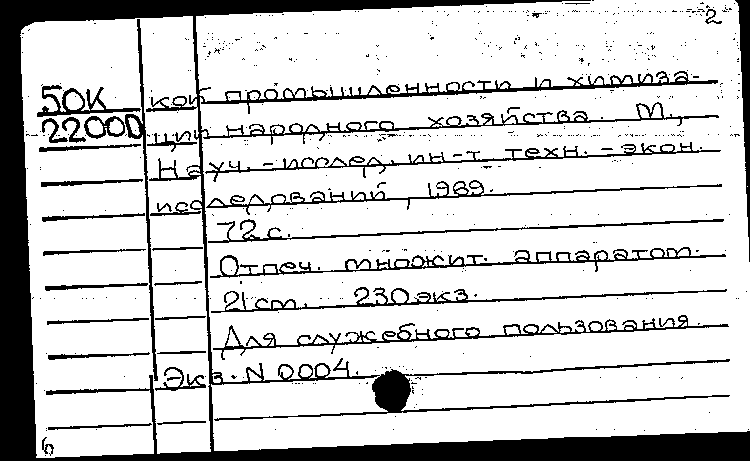 2
50К кой промышленности и химиза-
2200D ции народного хозяйства. М.,
Науч.-исслед. ин-т техн.-экон.
исследований, 1989.
72 с.
Отпеч. множит. аппаратом.
21 cm. 230 экз.
Для служебного пользования.
Экз. N 0004.